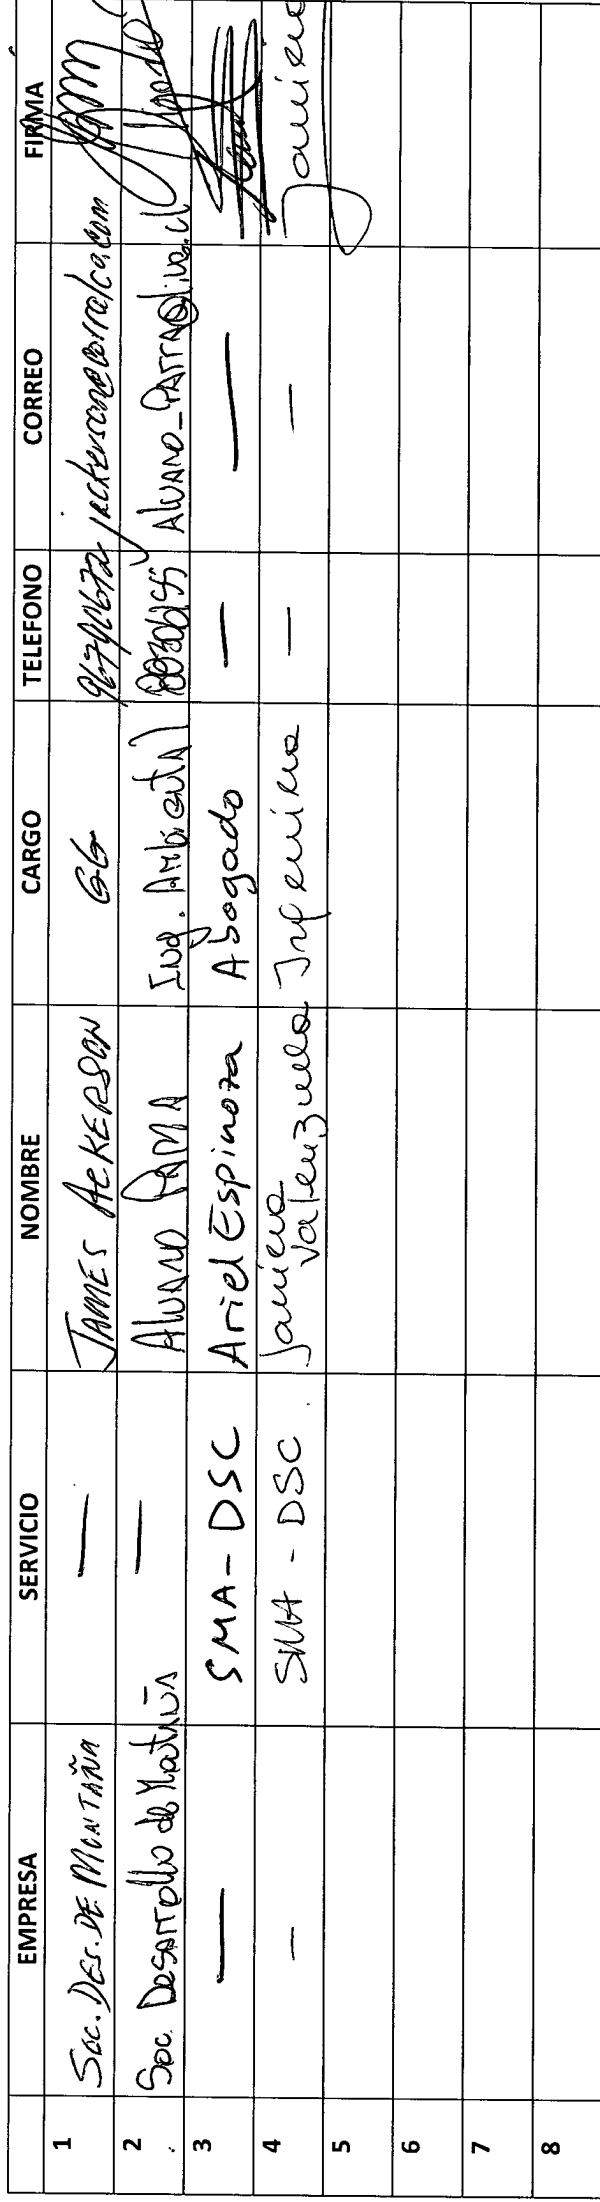 EMPRESA SERVICIO NOMBRE CARGO TELEFONO CORREO FIRMA
1 Soc. DES. DE MONTAÑA — JAMES ACKERSON GG
2 Soc. Desarrollo de — Alvaro PARRA Ing. Ambiental Alvaro_Parra@live.cl
3 — SMA-DSC Ariel Espinoza Abogado — —
4 — SMA - DSC. Javiera Valenzuela Ingeniera — — Javiera
5
6
7
8